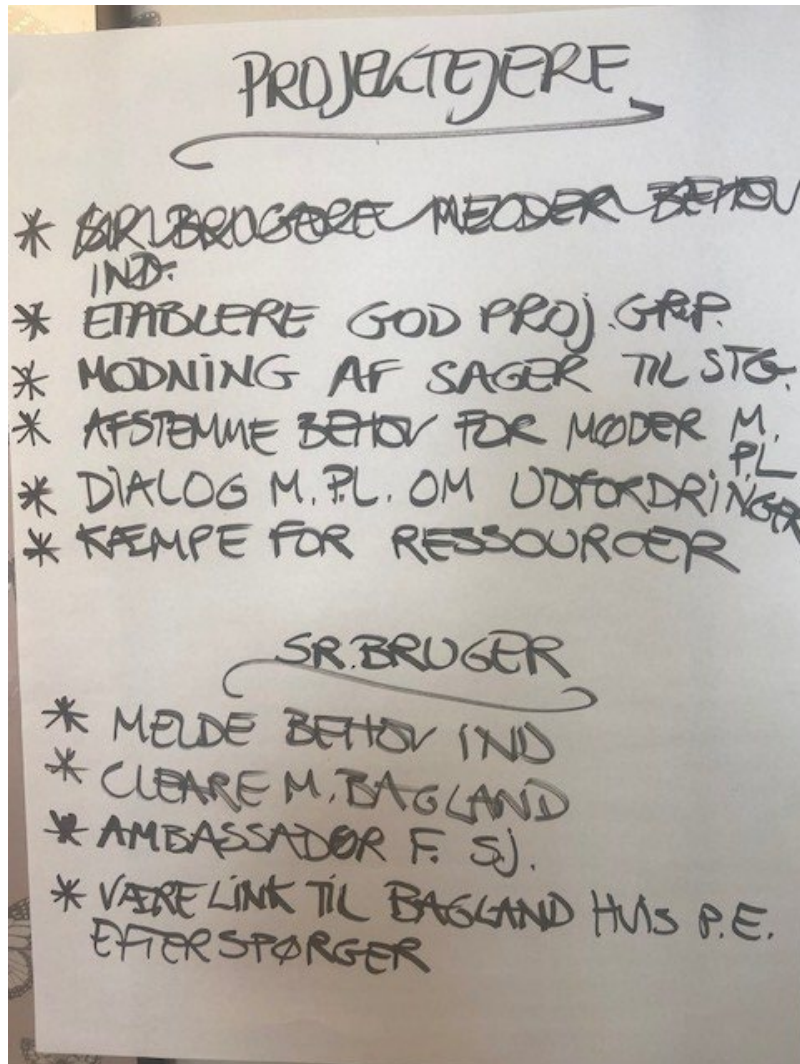 PROJEKTEJERE
* SR. BRUGERE MELDER BEHOV
IND.
* ETABLERE GOD PROJ. GRP.
* MODNING AF SAGER TIL STG.
* AFSTEMME BEHOV FOR MØDER M.
PL
* DIALOG M. P.L. OM UDFORDRINGER
* KÆMPE FOR RESSOURCER
SR. BRUGER
* MELDE BEHOV IND
* CLEARE M. BAGLAND
* AMBASSADØR F. SJ.
* VÆRE LINK TIL BAGLAND HVIS P.E.
EFTERSPØRGER